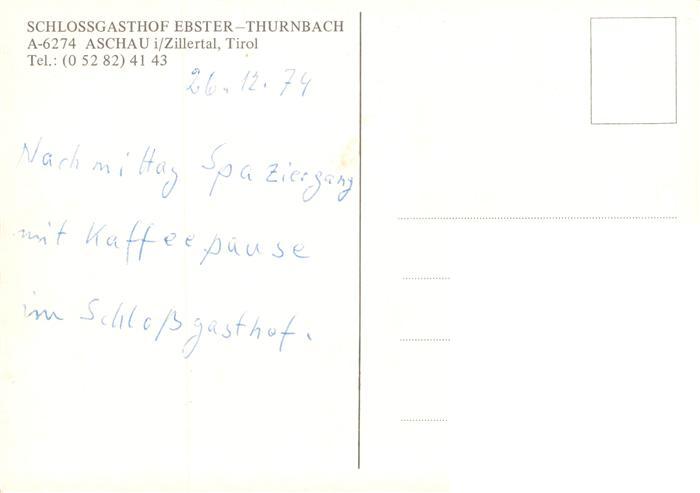 SCHLOSSGASTHOF EBSTER–THURNBACH
A-6274 ASCHAU i/Zillertal, Tirol
Tel.: (0 52 82) 41 43
26.12.74
Nachmittag Spaziergang
mit Kaffeepause
im Schloßgasthof.